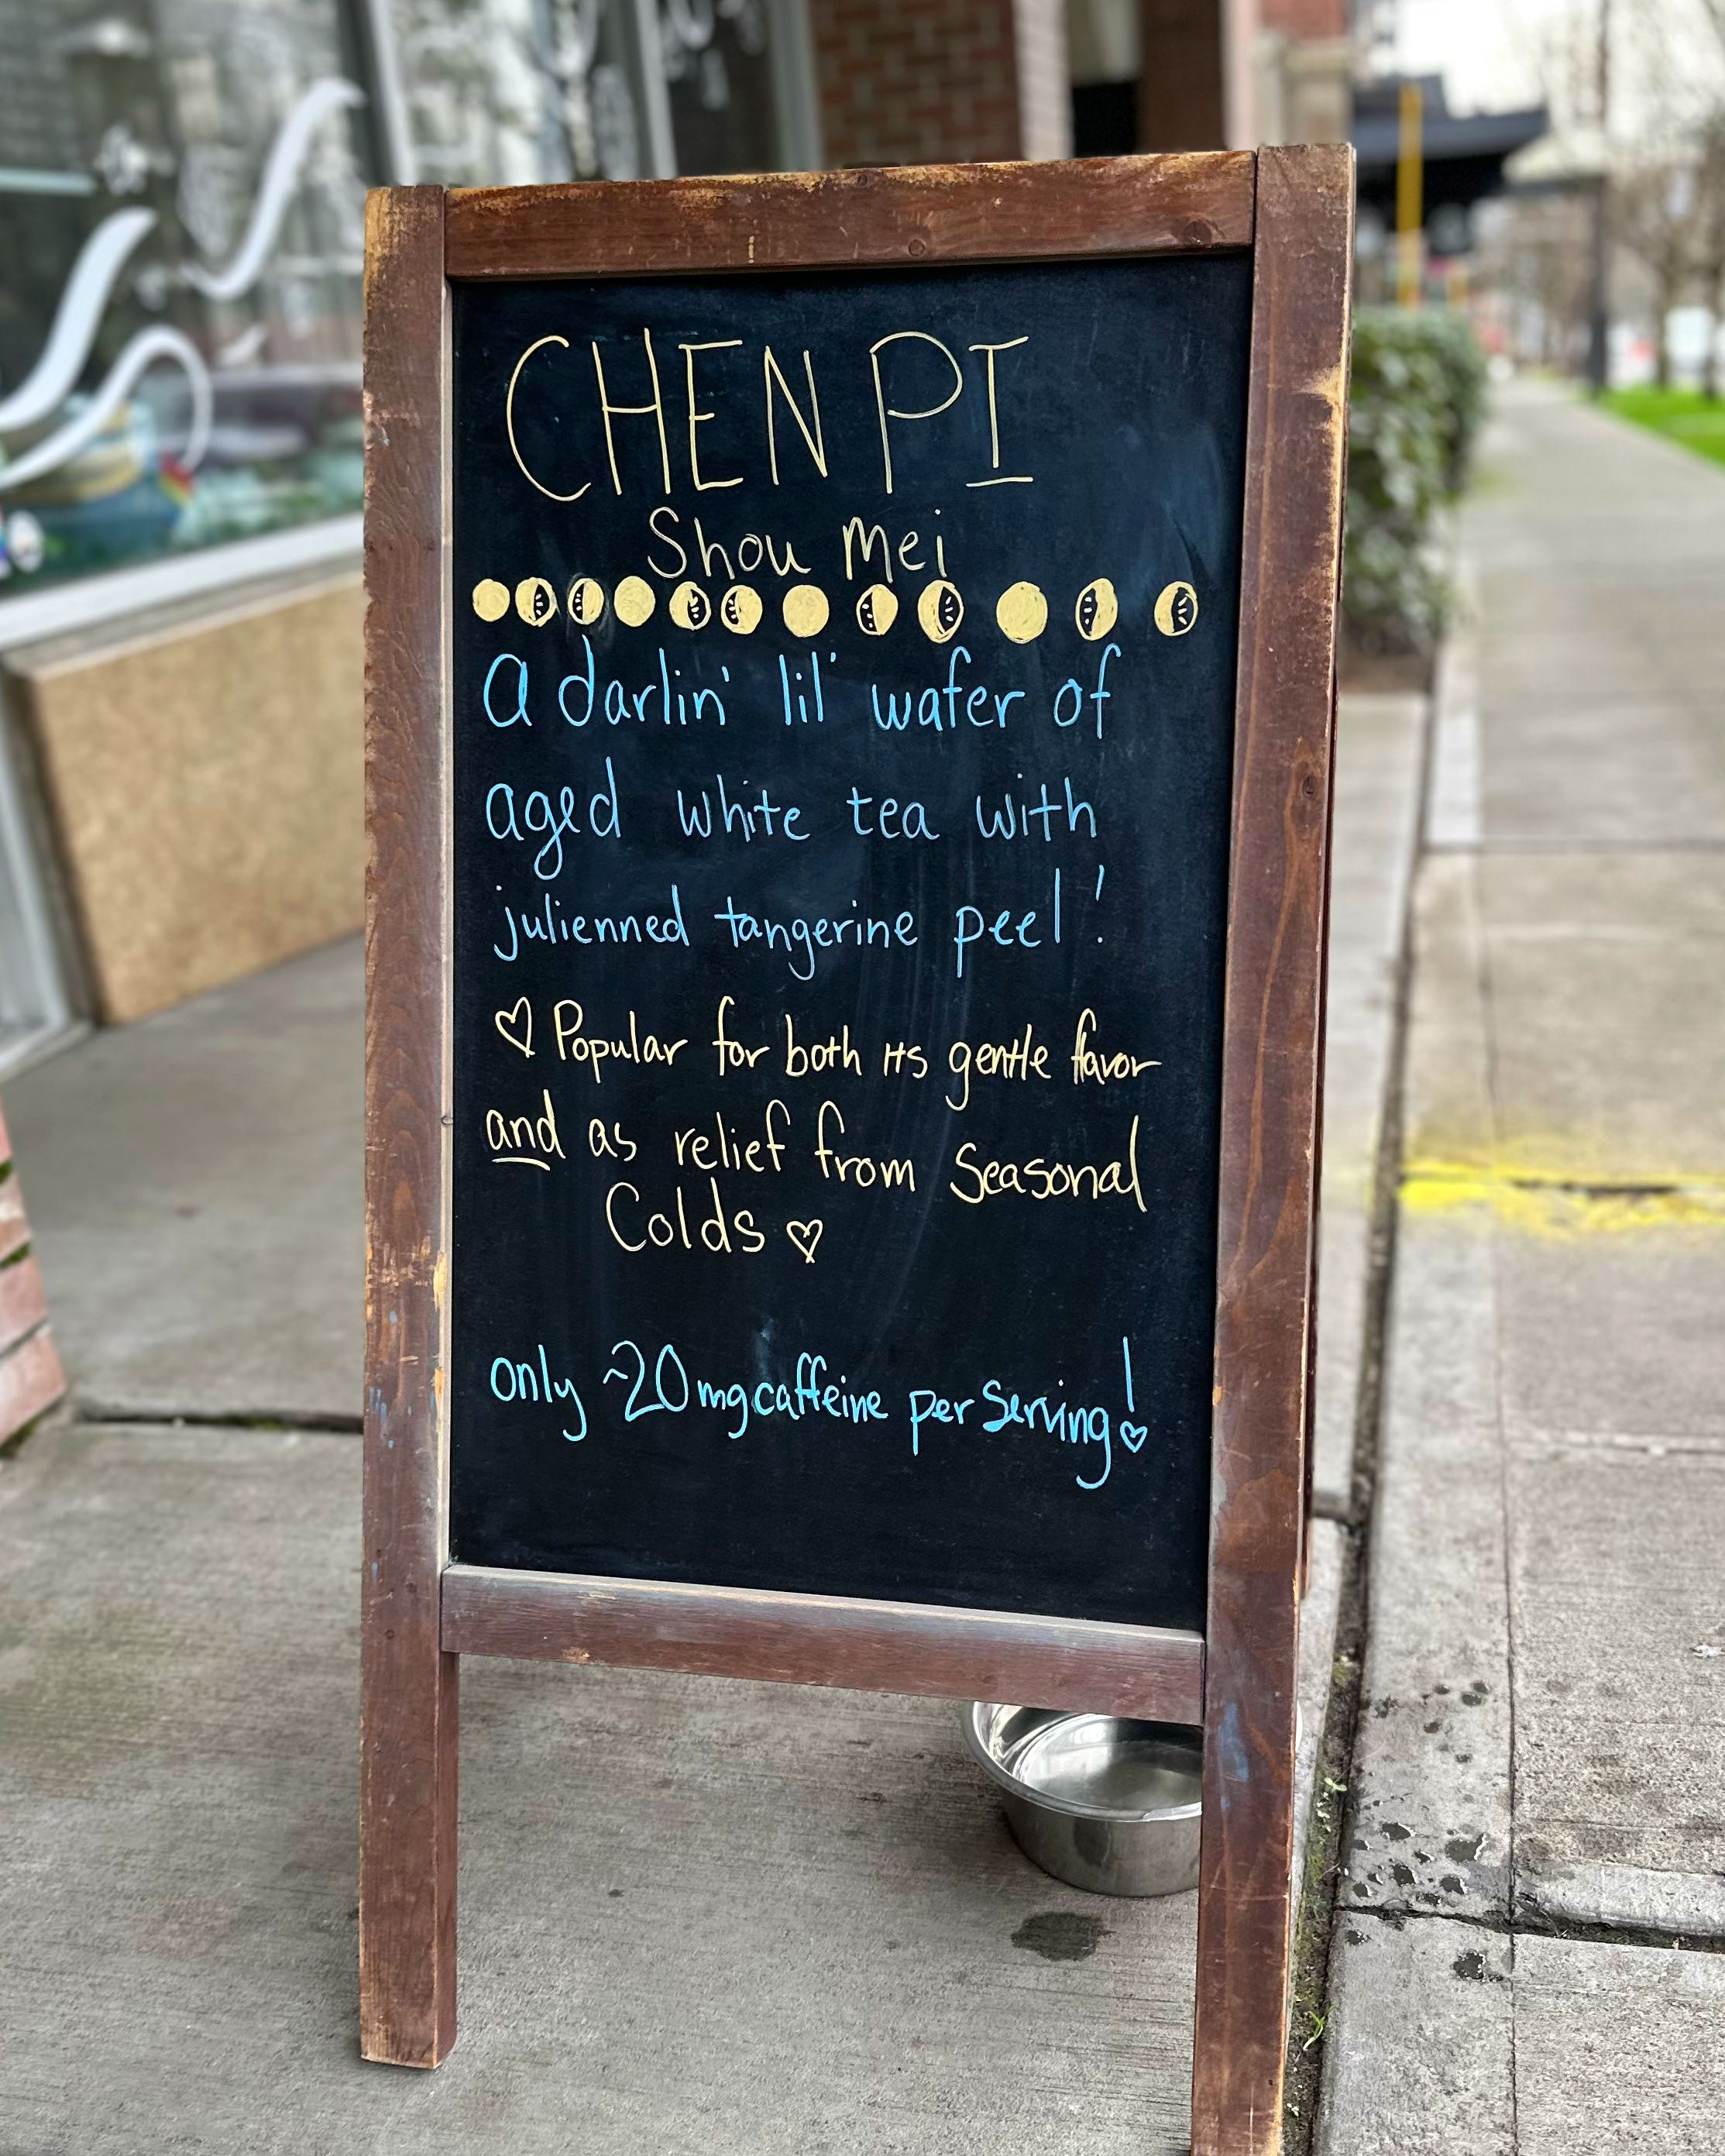 CHEN PI
Shou Mei
A darlin' lil' wafer of
aged white tea with
julienned tangerine peel!
♡ Popular for both its gentle flavor
and as relief from Seasonal
Colds ♡
only ~20mg caffeine per serving!